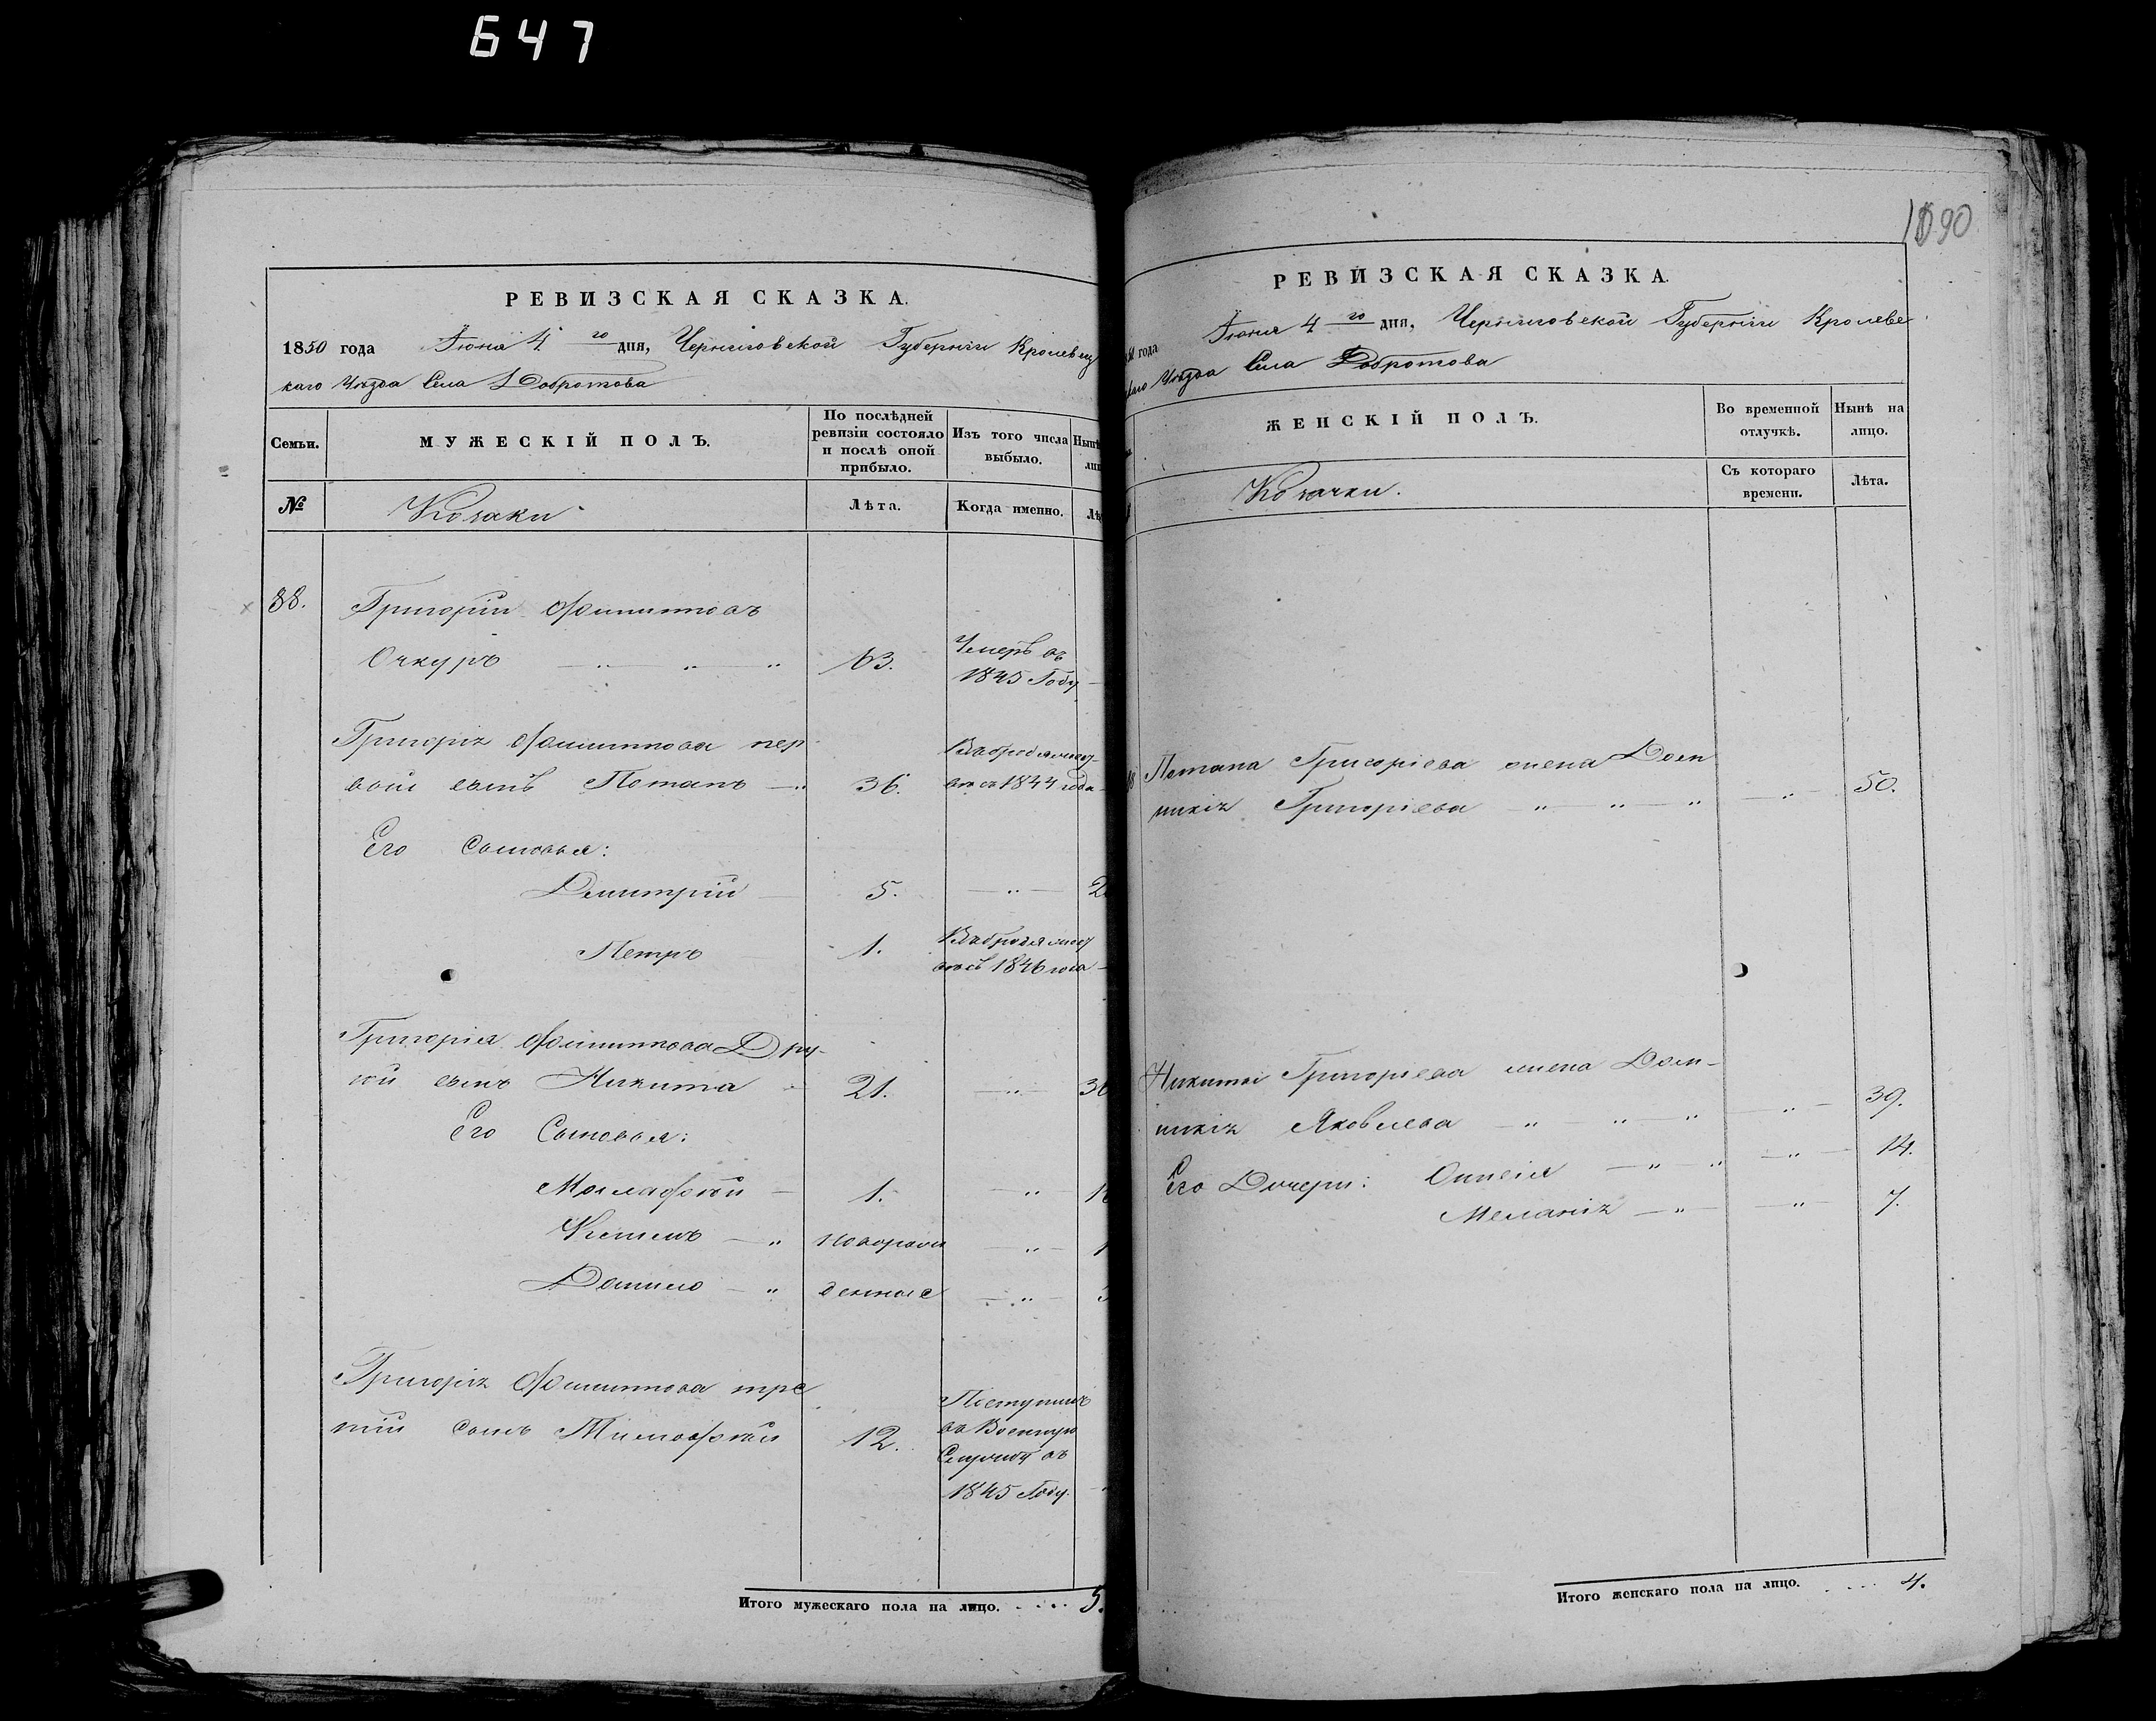 647
1090
РЕВИЗСКАЯ СКАЗКА.
1850 года Іюня 4 го дня, Черниговской Губерніи Кролевец
каго Уѣзда Села Добротова
Семьи.
МУЖЕСКІЙ ПОЛЪ.
По послѣдней
ревизіи состояло
и послѣ оной
прибыло.
Изъ того числа
выбыло.
№
Козаки
Лѣта.
Когда именно.
38.
Григорій Филиповъ
Очкуръ — „ „ „ 63. Умеръ въ
1845 Году
Григорія Филипова пер
вый сынъ Потапъ — „ 36. 1844 года
Его Сыновья:
Димитрій 5. — „ —
Петръ 1.
1846 года
Григорія Филипова Дру-
гой сынъ Никита 21. — „ —
Его Сыновья:
1. — „
— „ новорож — „ —
Данило — „ денные — „ —
Григорія Филипова тре
тій сынъ Тимофей 12. Поступилъ
въ Военную
Службу въ
1845 Году.
Итого мужескаго пола на лицо. . . . . 5.
РЕВИЗСКАЯ СКАЗКА.
года Іюня 4 го дня, Черниговской Губерніи Кролеве
Уѣзда Села Добротова
ЖЕНСКІЙ ПОЛЪ.
Во временной
отлучкѣ.
Нынѣ на
лицо.
Козачки.
Съ котораго
времени.
Лѣта.
Потапа Григоріева жена Дом
никія Григоріева — „ — „ — „ — „ — 50.
Никиты Григоріева жена Дом-
никія Яковлева — „ — „ — „ — „ — 39.
Его Дочери: — „ „ — „ — 14.
Меланія — „ — — „ — 7.
Итого женскаго пола на лицо. . . . . 4.